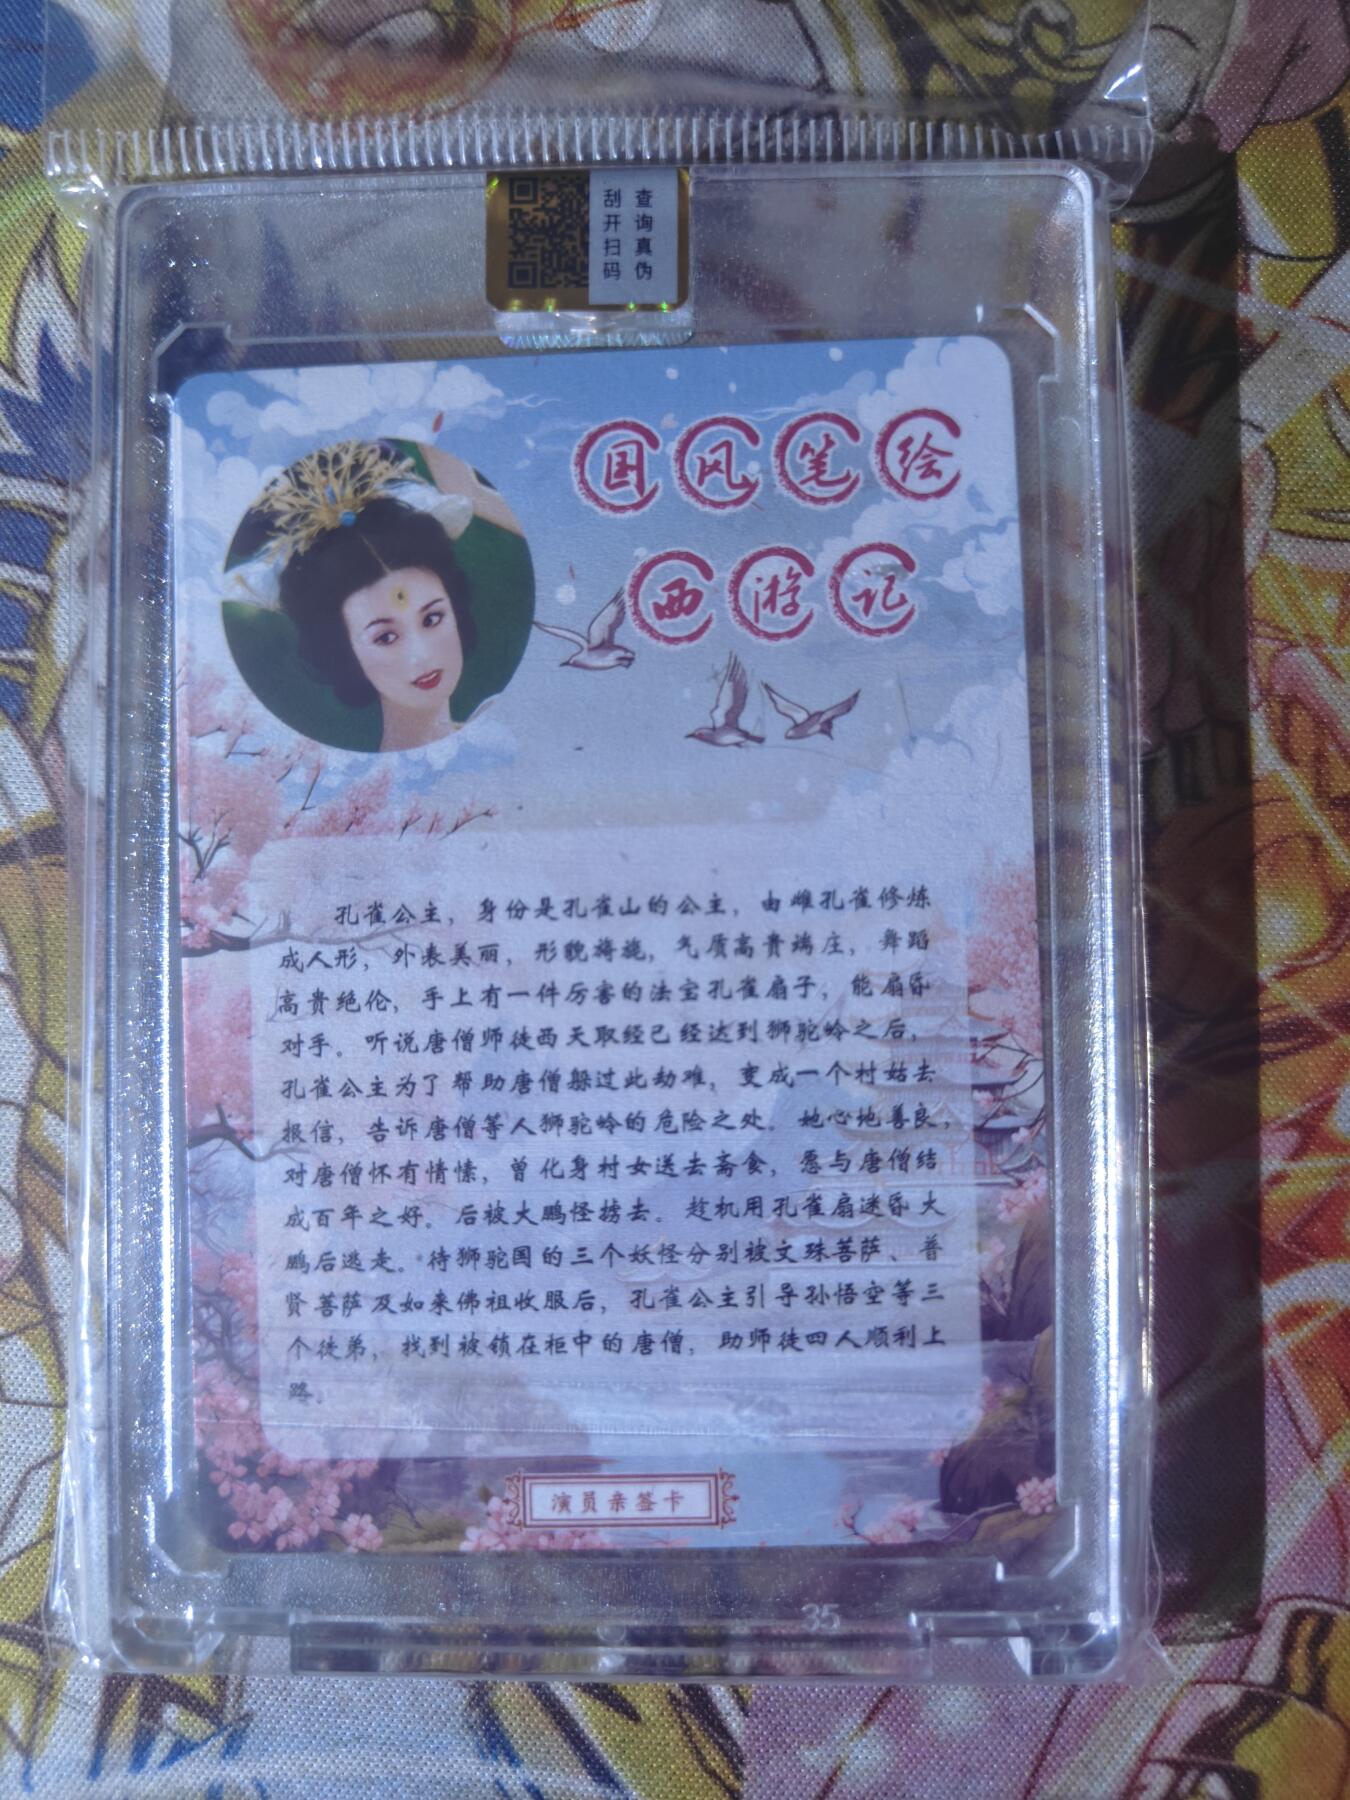 刮开扫码
查询真伪
国风笔绘
西游记
孔雀公主，身份是孔雀山的公主，由雌孔雀修炼
成人形，外表美丽，形貌旖旎，气质高贵端庄，舞蹈
高贵绝伦，手上有一件厉害的法宝孔雀扇子，能扇昏
对手。听说唐僧师徒西天取经已经达到狮驼岭之后，
孔雀公主为了帮助唐僧躲过此劫难，变成一个村姑去
报信，告诉唐僧等人狮驼岭的危险之处。她心地善良，
对唐僧怀有情愫，曾化身村女送去斋食，愿与唐僧结
成百年之好。后被大鹏怪掳去。趁机用孔雀扇迷昏大
鹏后逃走。待狮驼国的三个妖怪分别被文殊菩萨、普
贤菩萨及如来佛祖收服后，孔雀公主引导孙悟空等三
个徒弟，找到被锁在柜中的唐僧，助师徒四人顺利上
路。
演员亲签卡
35